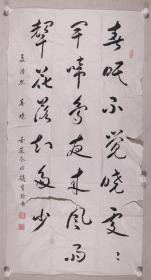 春眠不觉晓处〻
闻啼鸟夜来风雨
聲花落知多少
孟浩然 春晓
壬辰冬月